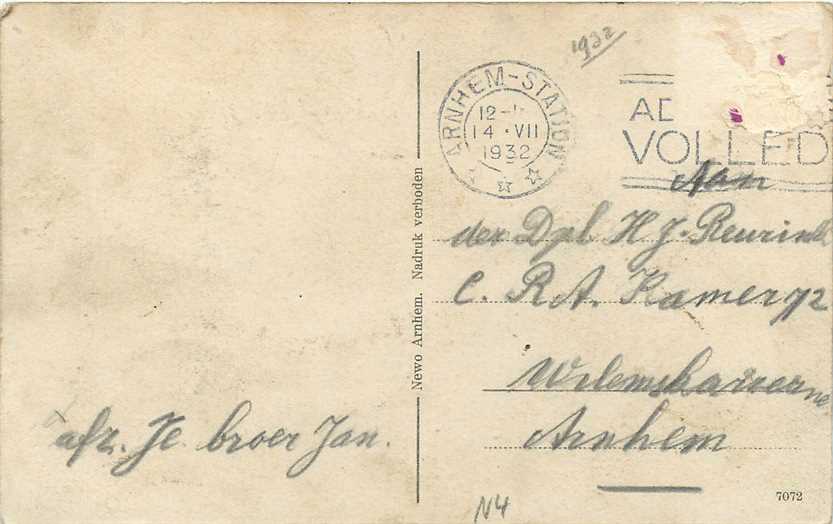 1932
ARNHEM-STATION
12-
14 · VII
1932
AD
VOLLED
Aan
den Dpl H J. Reurink
C. R.A. Kamer 72
Willemskazerne
Arnhem
afz. Je broer Jan.
Newo Arnhem. Nadruk verboden
N4
7072